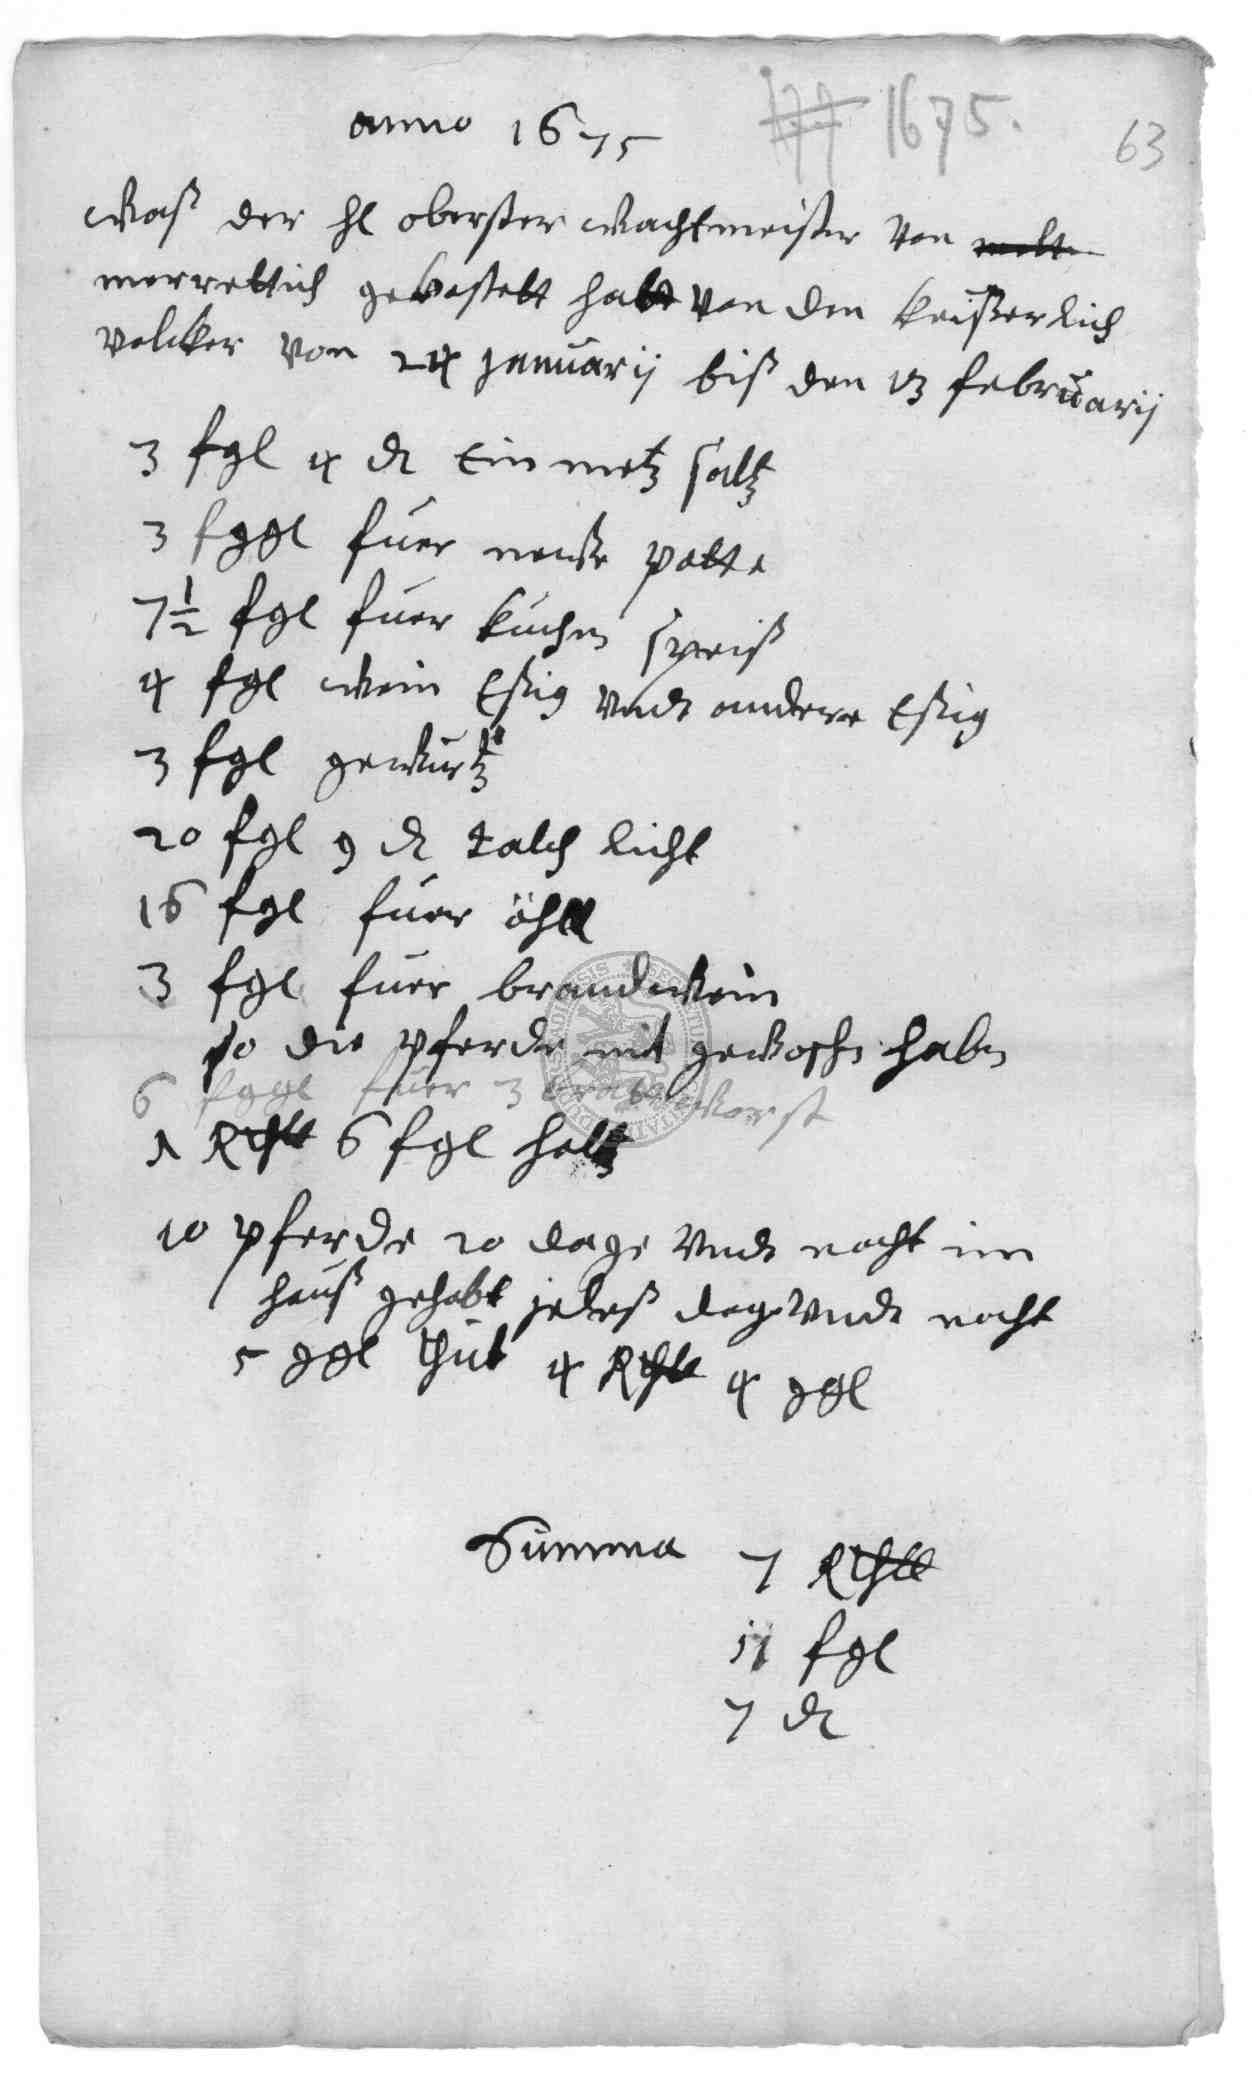 anno 1675
1675.
63
Waß der hl oberster Wachtmeister von
merrettich gekostett hatt von den keißerlich
volcker von 24 januarij biß den 13 februarij
3 fgl 4 d Ein metz saltz
3 fggl fuer neuße potte
7 1/2 fgl fuer kuchen speiß
4 fgl Wein Eßig vnd andere Eßig
3 fgl gewurtz
20 fgl 9 d talch licht
16 fgl fuer öhll
3 fgl fuer brandwein
so die pferde mit gewoschen haben
6 fggl fuer 3 worst
1 Rthll 6 fgl holtz
10 pferde 20 dage vnd nacht im
hauß gehabt jedeß dag vnd nacht
5 ggl thut 4 Rthll 4 ggl
Summa 7 Rthll
11 fgl
7 d